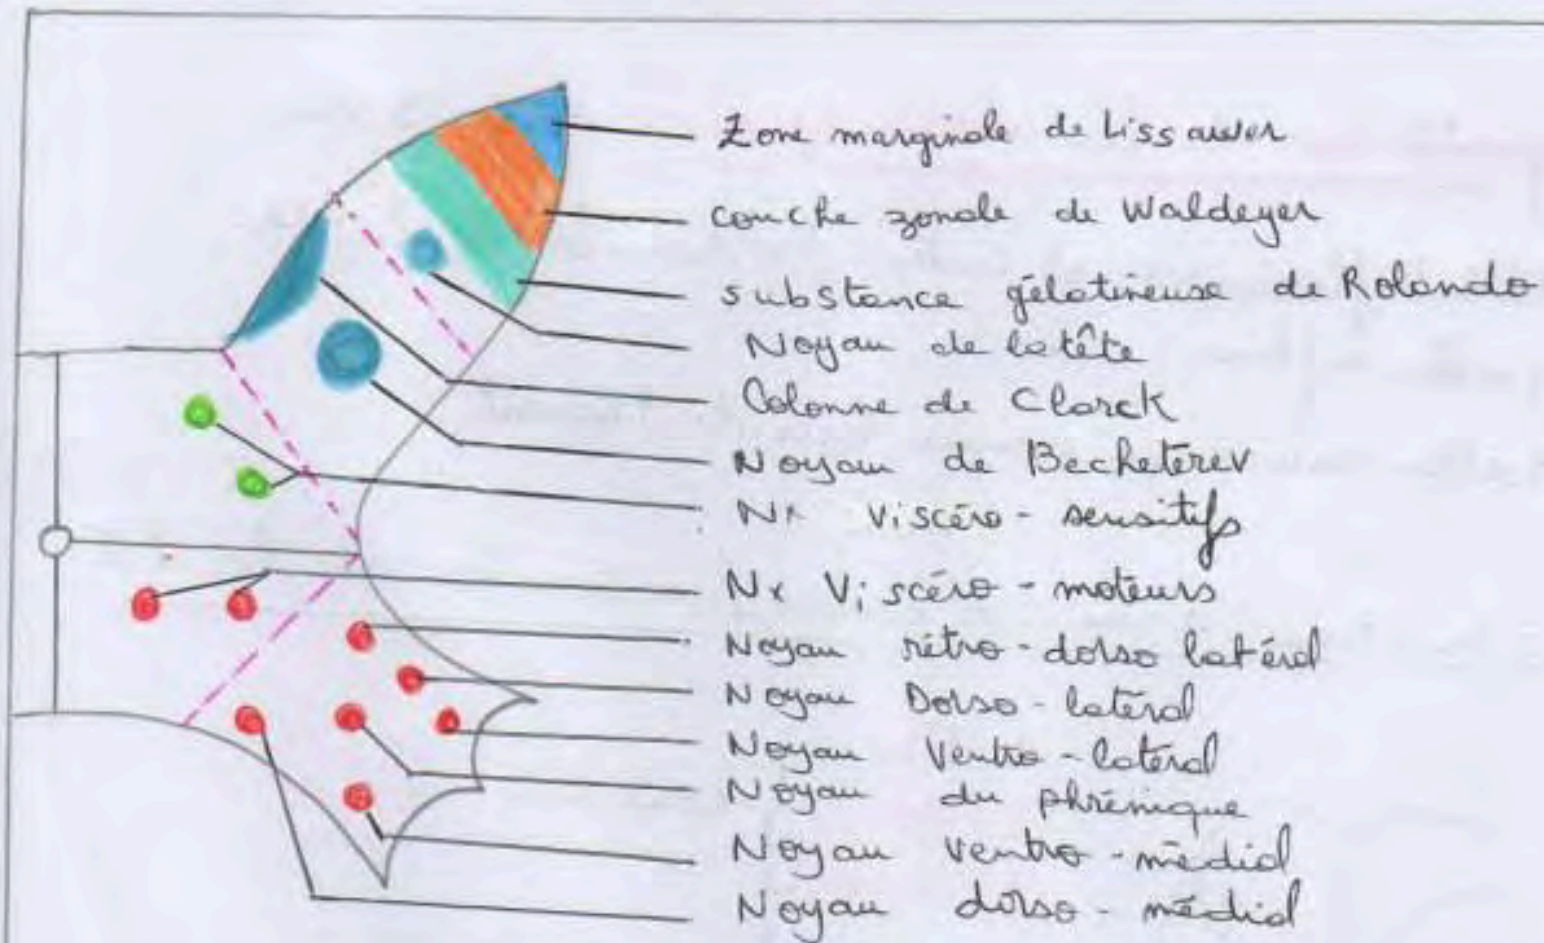 Zone marginale de Lissauer
couche zonale de Waldeyer
substance gélatineuse de Rolando
Noyau de la tête
Colonne de Clarck
Noyau de Becheterev
Nx viscéro-sensitifs
Nx Viscéro-moteurs
Noyau rétro-dorso latéral
Noyau Dorso-latéral
Noyau Ventro-latéral
Noyau du phrénique
Noyau ventro-médial
Noyau dorso-médial